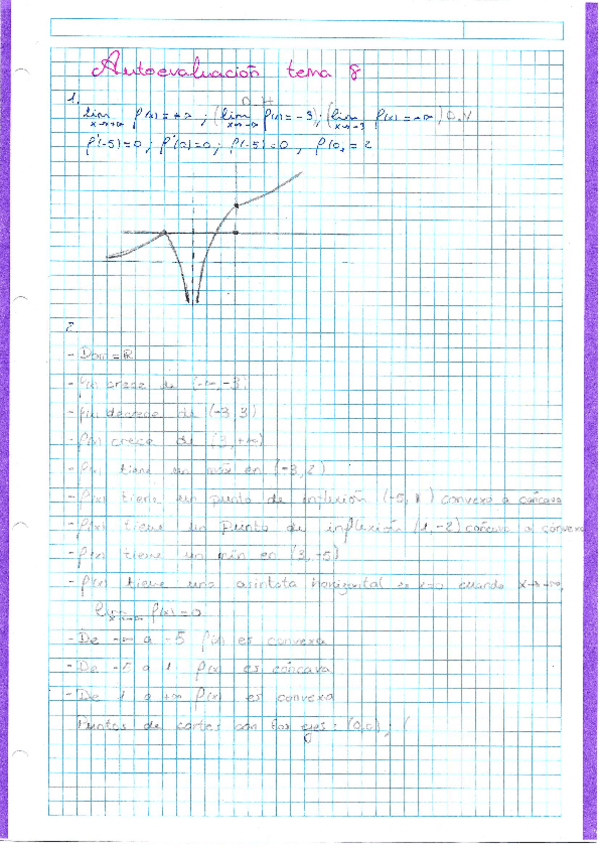 Autoevaluación tema 8
1.
A.H
lim x→+∞ f(x) = +∞ ; (lim x→-∞ f(x) = -3) ; (lim x→-3 f(x) = -∞) A.V
f'(-5)=0 ; f'(0)=0 ; f(-5)=0 , f(0) = 2
2.
- Dom = ℝ
- f(x) crece de (-∞,-3)
- f(x) decrece de (-3,3)
- f(x) crece de (3,+∞)
- f(x) tiene un máx en (-3,2)
- f(x) tiene un punto de inflexión (-5,1) convexa a cóncava
- f(x) tiene un punto de inflexión (1,-2) cóncava a convexa
- f(x) tiene un mín en (3,-5)
- f(x) tiene una asíntota horizontal cuando x→-∞,
lim x→-∞ f(x)=0
- De -∞ a -5 f(x) es convexa
- De -5 a 1 f(x) es cóncava
- De 1 a +∞ f(x) es convexa
Puntos de cortes con los ejes: (0,0) ; (